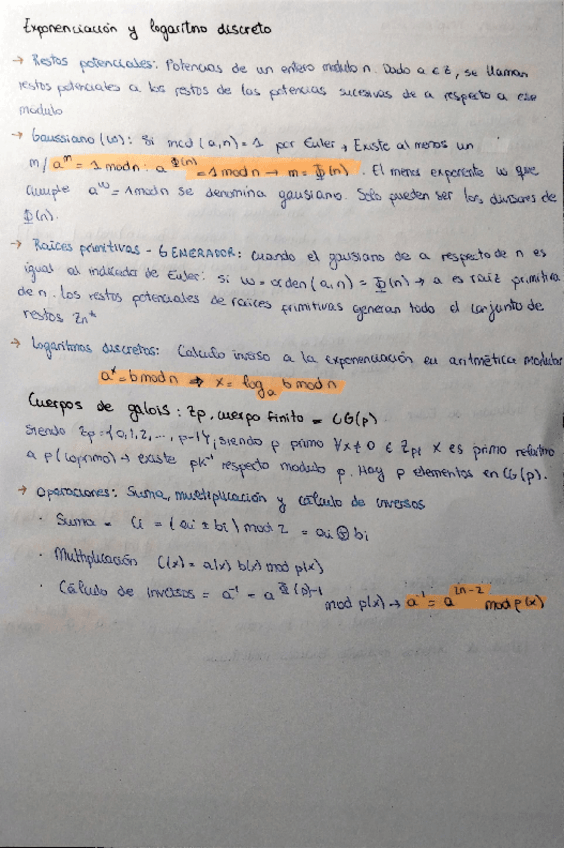 Exponenciación y logaritmo discreto
→ Restos potenciales: Potencias de un entero modulo n. Dado a ∈ Z, se llaman
restos potenciales a los restos de las potencias sucesivas de a respecto a ese
modulo
→ Gaussiano (ω): Si mcd (a,n) = 1 por Euler → Existe al menos un
m / a^m = 1 mod n : a^Φ(n) = 1 mod n → m = Φ(n). El menor exponente ω que
cumple a^ω = 1 mod n se denomina gausiano. Solo pueden ser los divisores de
Φ(n).
→ Raíces primitivas - GENERADOR: Cuando el gausiano de a respecto de n es
igual al indicador de Euler: si ω = orden (a,n) = Φ(n) → a es raiz primitiva
de n. Los restos potenciales de raices primitivas generan todo el conjunto de
restos Zn*
→ Logaritmos discretos: Calculo inverso a la exponenciación en aritmética modular
a^x = b mod n ⇒ x = log_a b mod n
Cuerpos de galois: Zp, cuerpo finito = CG(p)
siendo Zp = {0,1,2,..., p-1}, siendo p primo ∀x ≠ 0 ∈ Zp, x es primo relativo
a p (coprimo) → existe respecto modulo p. Hay p elementos en CG(p).
→ Operaciones: Suma, multiplicación y cálculo de inversos
· Suma = Ci = (ai ± bi) mod 2 = ai ⊕ bi
· Multiplicación C(x) = a(x) b(x) mod p(x)
· Cálculo de inversos = a^-1 = a^Φ(p)-1 mod p(x) → a^-1 = a^2n-2 mod p(x)